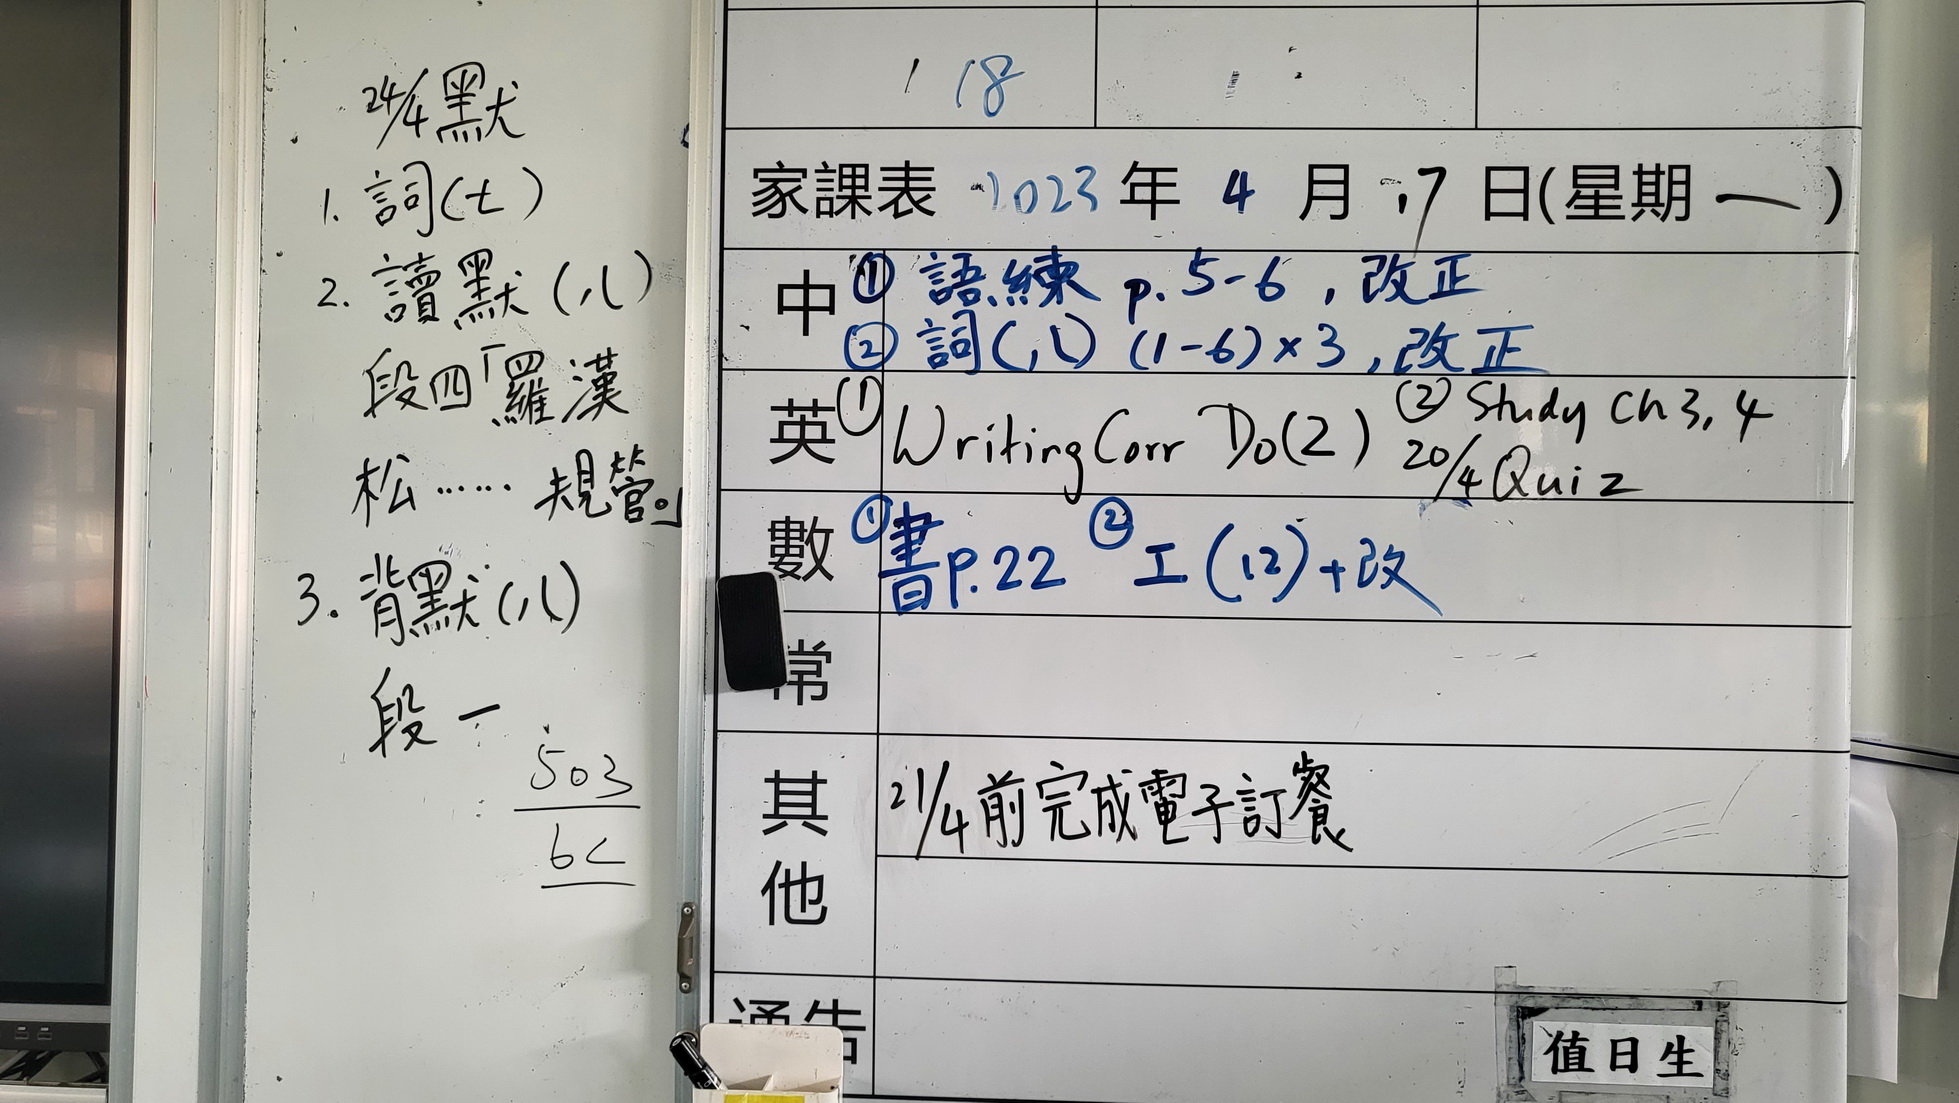 24/4默
1. 詞(七)
2. 讀默(八)
段四「羅漢
松…… 規管。」
3. 背默(八)
段一
503
6C
18
家課表 2023年 4月 17日(星期一)
中 ① 語練 p. 5-6, 改正
② 詞(八) (1-6)×3, 改正
英 ① Writing Corr Do(2) ② Study Ch 3, 4
20/4 Quiz
數 ① 書p.22 ② 工(12)+改
常
其他 21/4前完成電子訂餐
通告
值日生